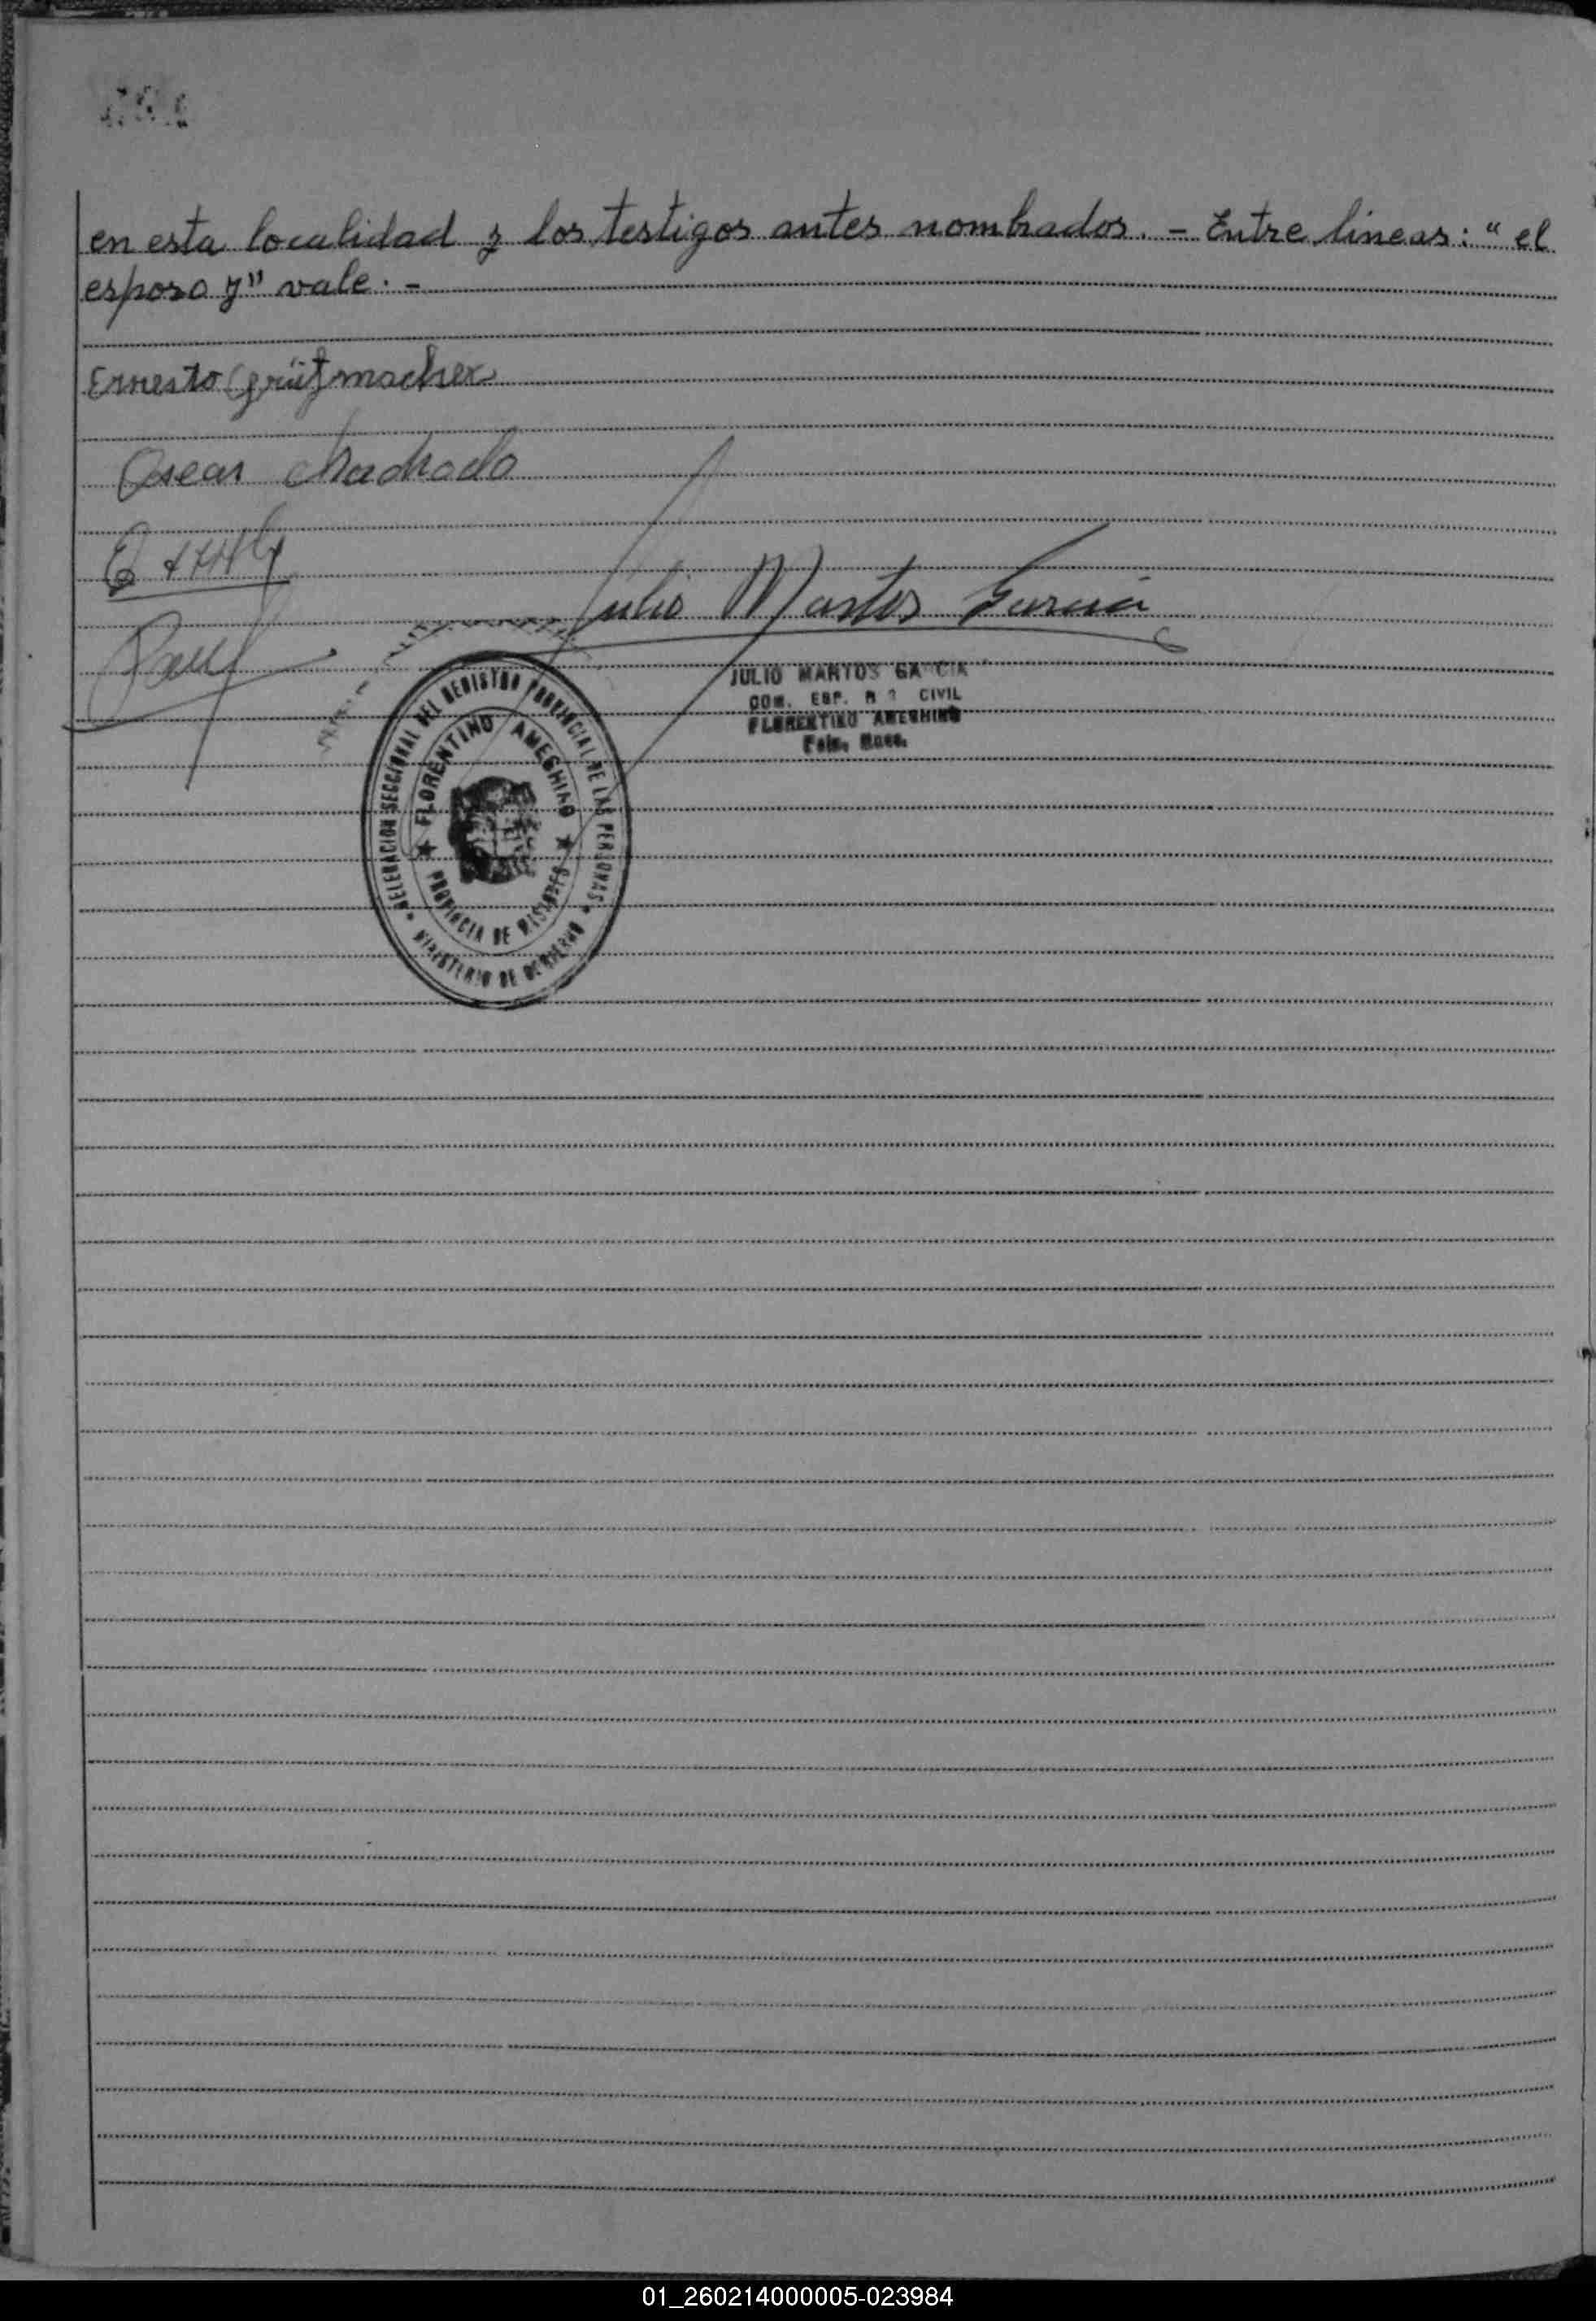 en esta localidad y los testigos antes nombrados. - Entre lineas: " el
esposo y" vale. -
Ernesto Grützmacher
Oscar
Julio Martos Garcia
JULIO MARTOS GARCIA
CIVIL
FLORENTINO AMEGHINO
DELEGACION SECCIONAL DEL REGISTRO PROVINCIAL DE LAS PERSONAS
FLORENTINO AMEGHINO
PROVINCIA DE MISIONES
MINISTERIO DE GOBIERNO
01_260214000005-023984